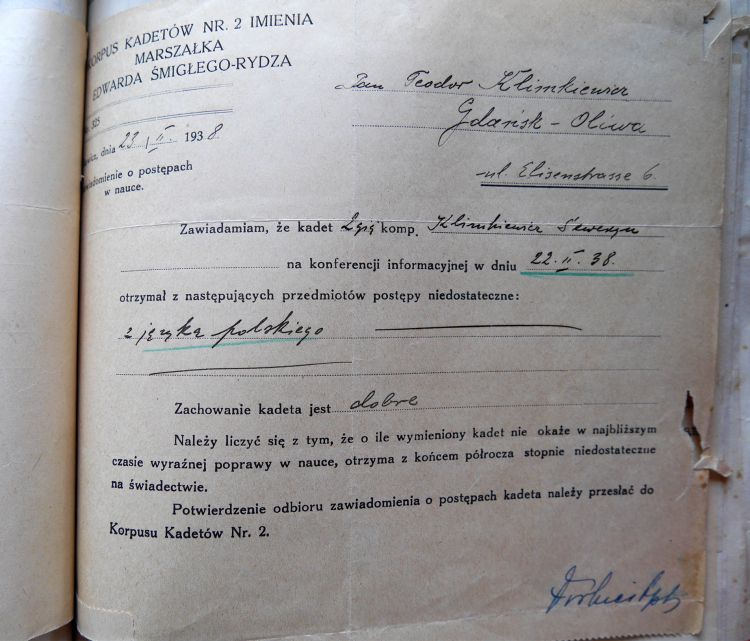 KORPUS KADETÓW NR. 2 IMIENIA
MARSZAŁKA
EDWARDA ŚMIGŁEGO-RYDZA
Pan Teodor Klimkiewicz
Gdańsk - Oliwa
ul. Elisenstrasse 6.
325
dnia 23/II. 1938
o postępach
w nauce.
Zawiadamiam, że kadet komp. Klimkiewicz Seweryn
na konferencji informacyjnej w dniu 22.II.38.
otrzymał z następujących przedmiotów postępy niedostateczne:
z języka polskiego
Zachowanie kadeta jest dobre
Należy liczyć się z tym, że o ile wymieniony kadet nie okaże w najbliższym
czasie wyraźnej poprawy w nauce, otrzyma z końcem półrocza stopnie niedostateczne
na świadectwie.
Potwierdzenie odbioru zawiadomienia o postępach kadeta należy przesłać do
Korpusu Kadetów Nr. 2.